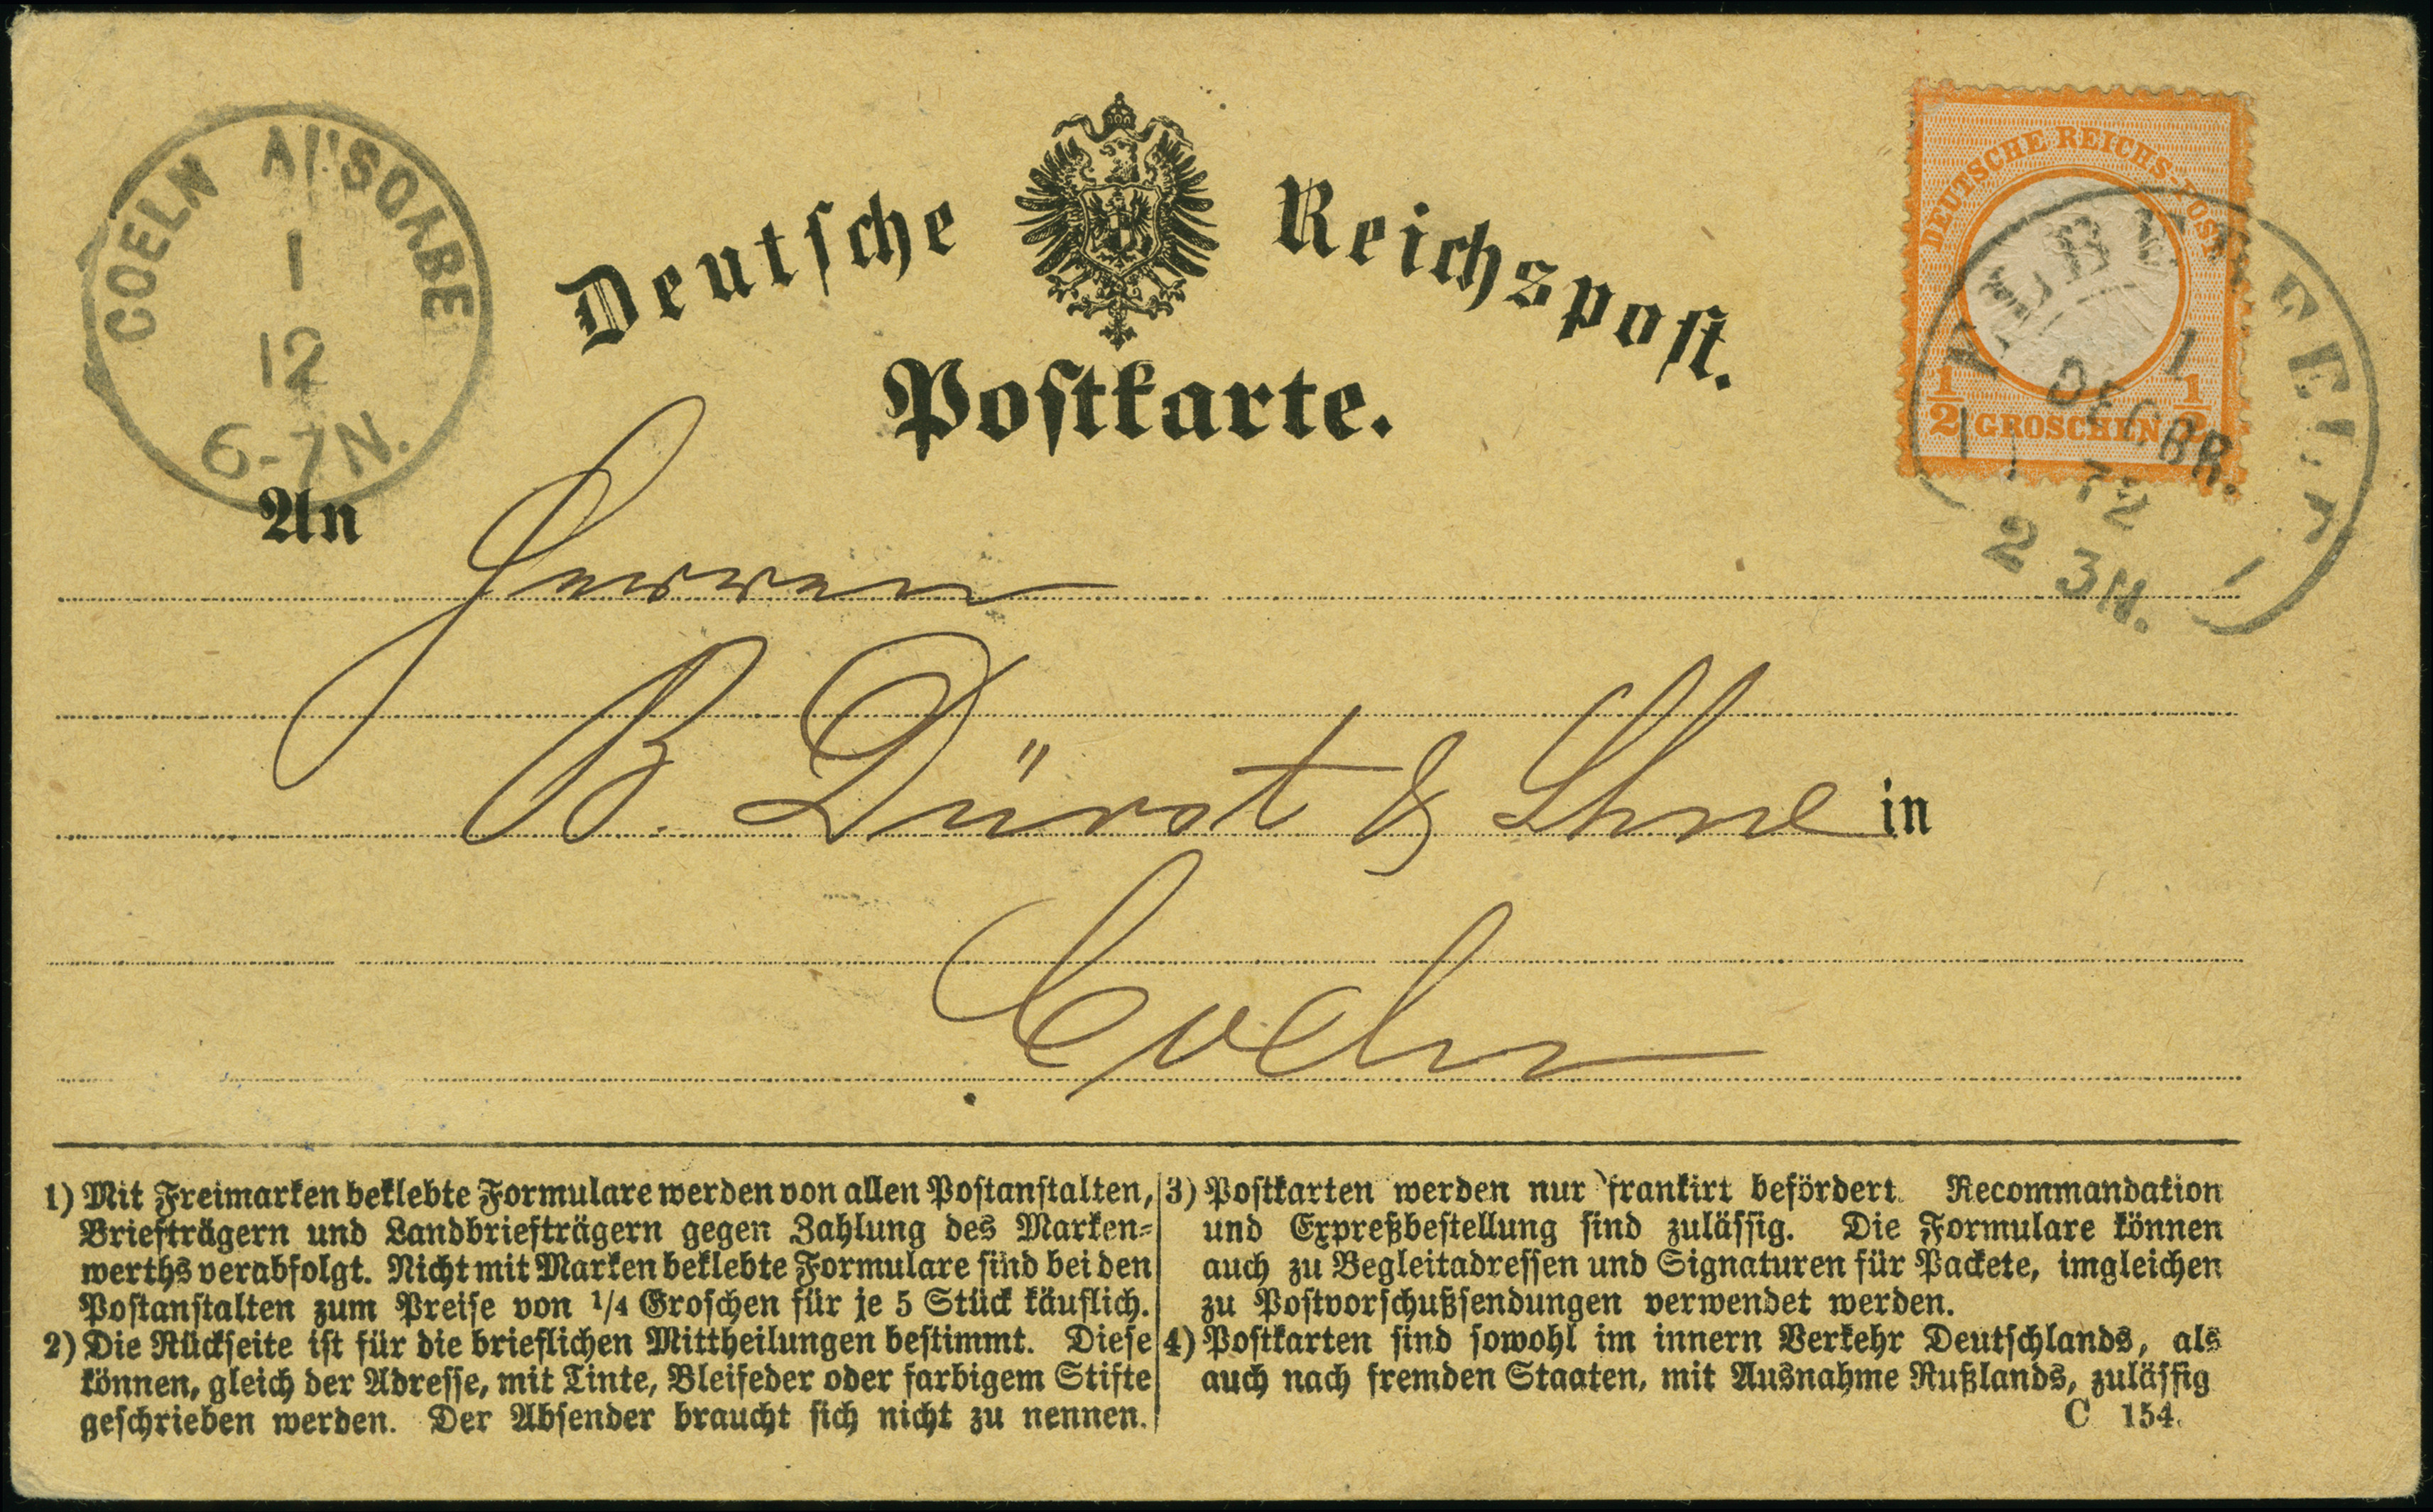 COELN AUSGABE
1
12
6-7N.
Deutsche Reichspost.
Postkarte.
DEUTSCHE REICHS-POST
1/2 GROSCHEN 1/2
1
DECBR.
72
2 3N.
An
Herren
B. Dürst & Shne in
Coeln
1) Mit Freimarken beklebte Formulare werden von allen Postanstalten,
Briefträgern und Landbriefträgern gegen Zahlung des Marken-
werths verabfolgt. Nicht mit Marken beklebte Formulare sind bei den
Postanstalten zum Preise von 1/4 Groschen für je 5 Stück käuflich.
2) Die Rückseite ist für die brieflichen Mittheilungen bestimmt. Diese
können, gleich der Adresse, mit Tinte, Bleifeder oder farbigem Stifte
geschrieben werden. Der Absender braucht sich nicht zu nennen.
3) Postkarten werden nur frankirt befördert. Recommandation
und Expreßbestellung sind zulässig. Die Formulare können
auch zu Begleitadressen und Signaturen für Packete, imgleichen
zu Postvorschußsendungen verwendet werden.
4) Postkarten sind sowohl im innern Verkehr Deutschlands, als
auch nach fremden Staaten, mit Ausnahme Rußlands, zulässig
C 154.